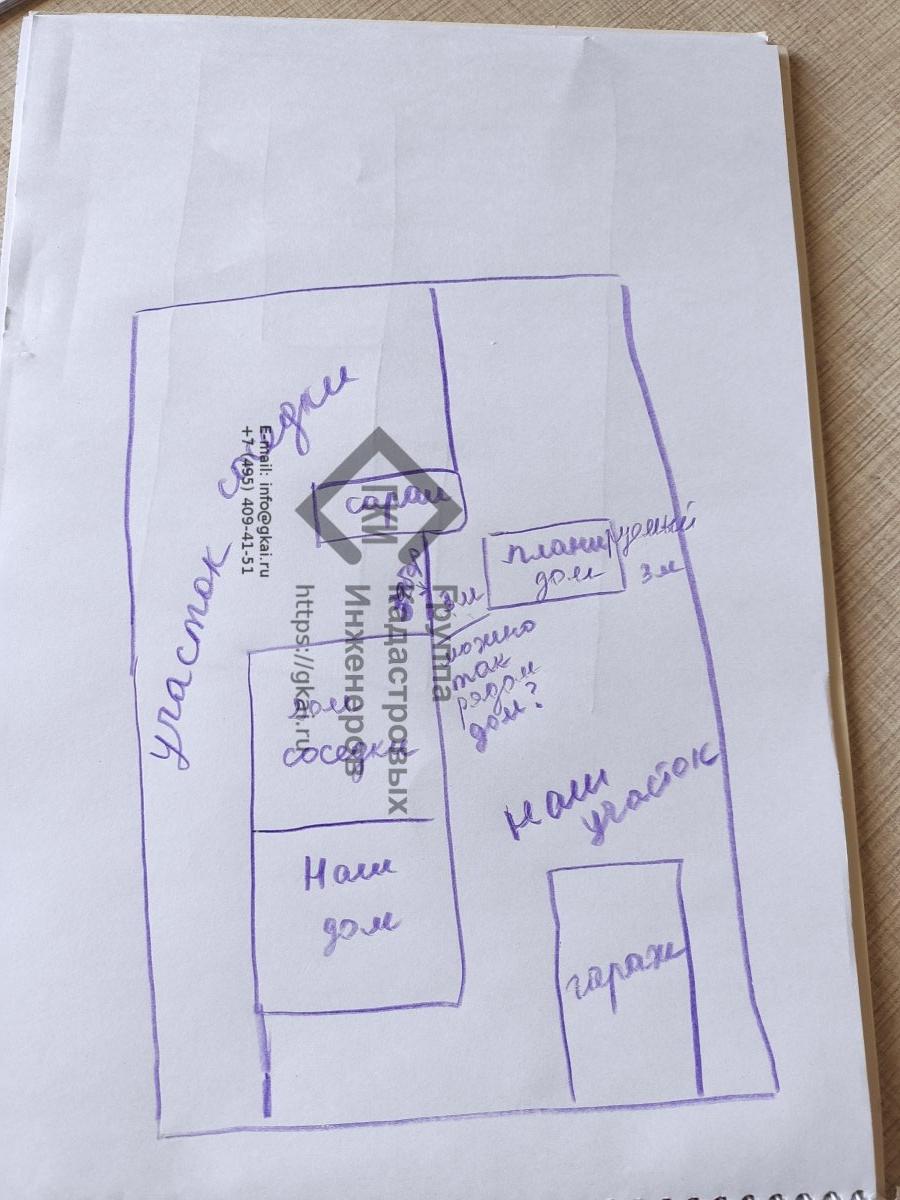 участок соседки
сараи
планируемый
дом
3м
3м
можно
так
рядом
дом?
дом
соседки
Наш
участок
Наш
дом
гараж
E-mail: info@gkai.ru
+7 (495) 409-41-51
ГКИ
Группа
Кадастровых
Инженеров
https://gkai.ru